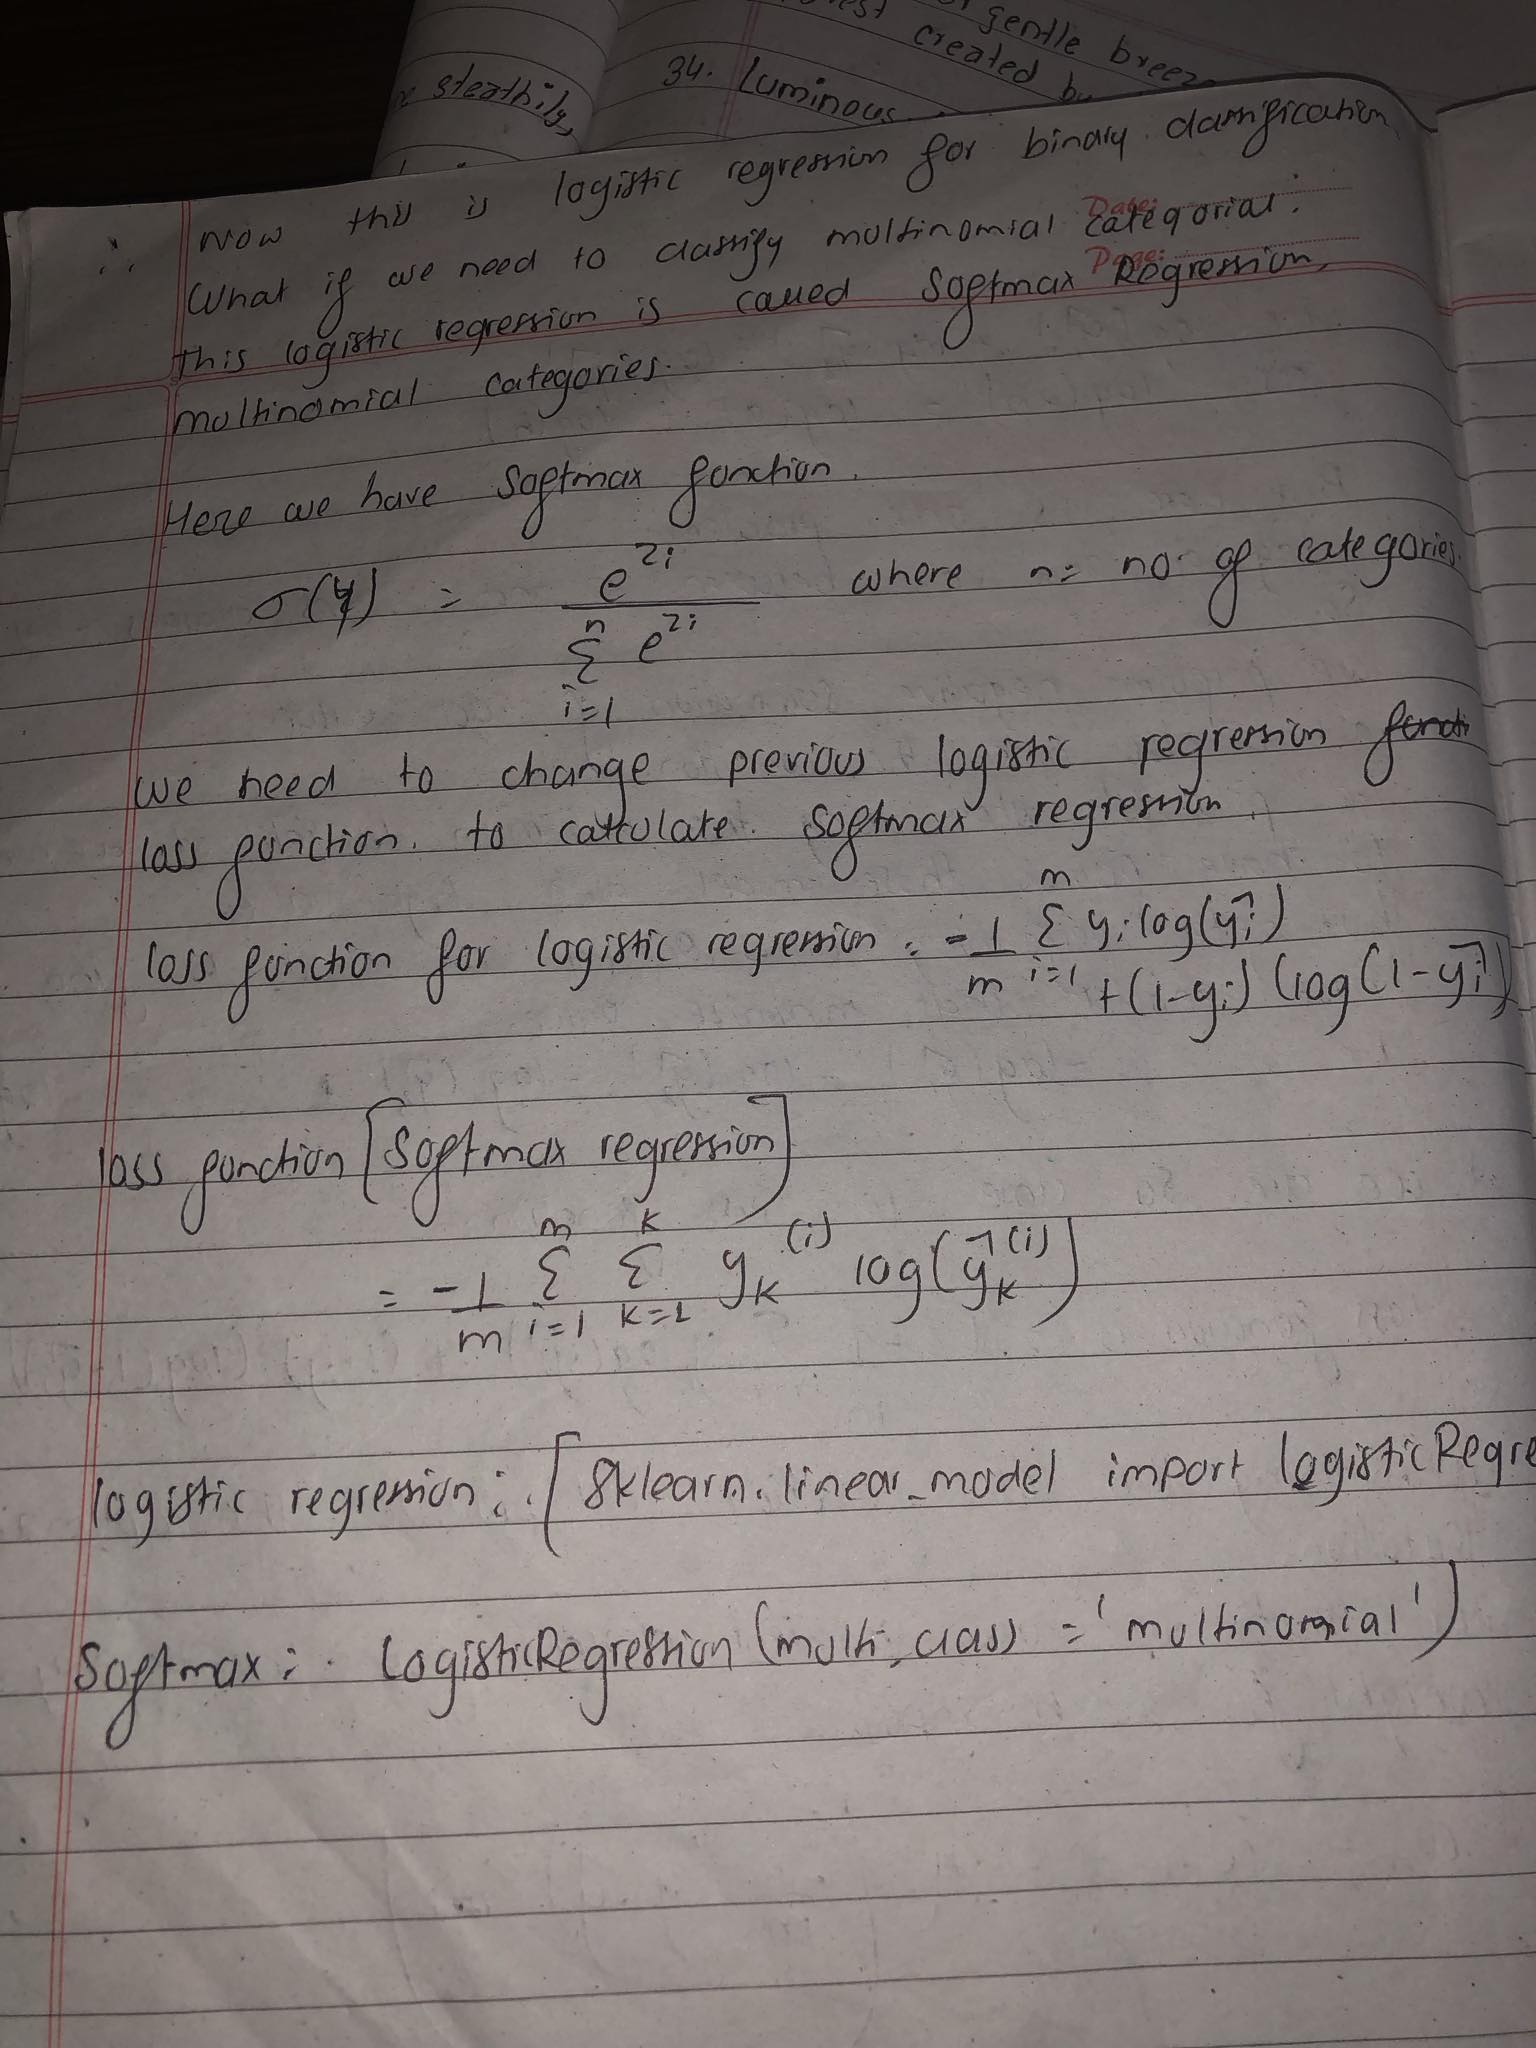 gentle breez
created by
34. Luminous
stealthily,
∴ Now this is logistic regression for binary classification
Date:
What if we need to classify multinomial categorial.
Page:
This logistic regression is called Softmax Regression,
multinomial categories.
Here we have Softmax function.
σ(y) = e^zi / Σ_{i=1}^{n} e^zi where n = no. of categories.
we need to change previous logistic regression functi
loss function. to calculate. softmax regression.
loss function for logistic regression. -1/m Σ_{i=1}^{m} yi log(ŷi)
+(1-yi) (log(1-ŷi)
loss function [Softmax regression]
= -1/m Σ_{i=1}^{m} Σ_{k=1}^{k} y_k^(i) log(ŷ_k^(i))
logistic regression: [sklearn.linear_model import logisticRegre
Softmax: LogisticRegression (multi_class = 'multinomial')